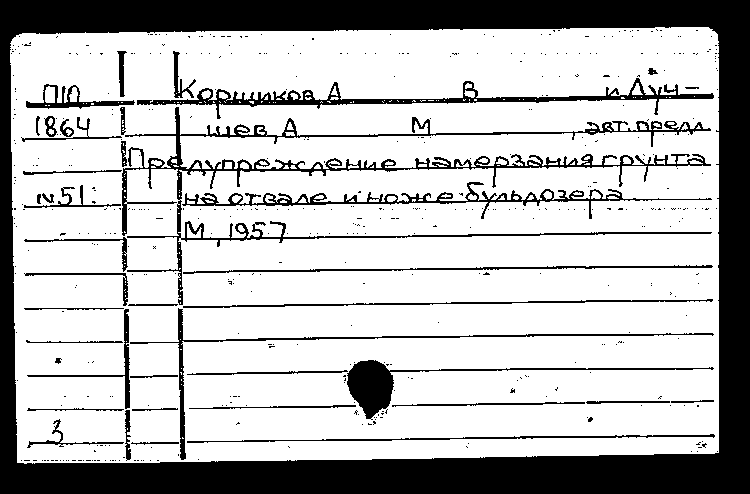 П1П Корщиков, А В и Луч-
1864 шев, А М , авт. предл
Предупреждение намерзания грунта
№51: на отвале и ноже бульдозера
М, 1957
3